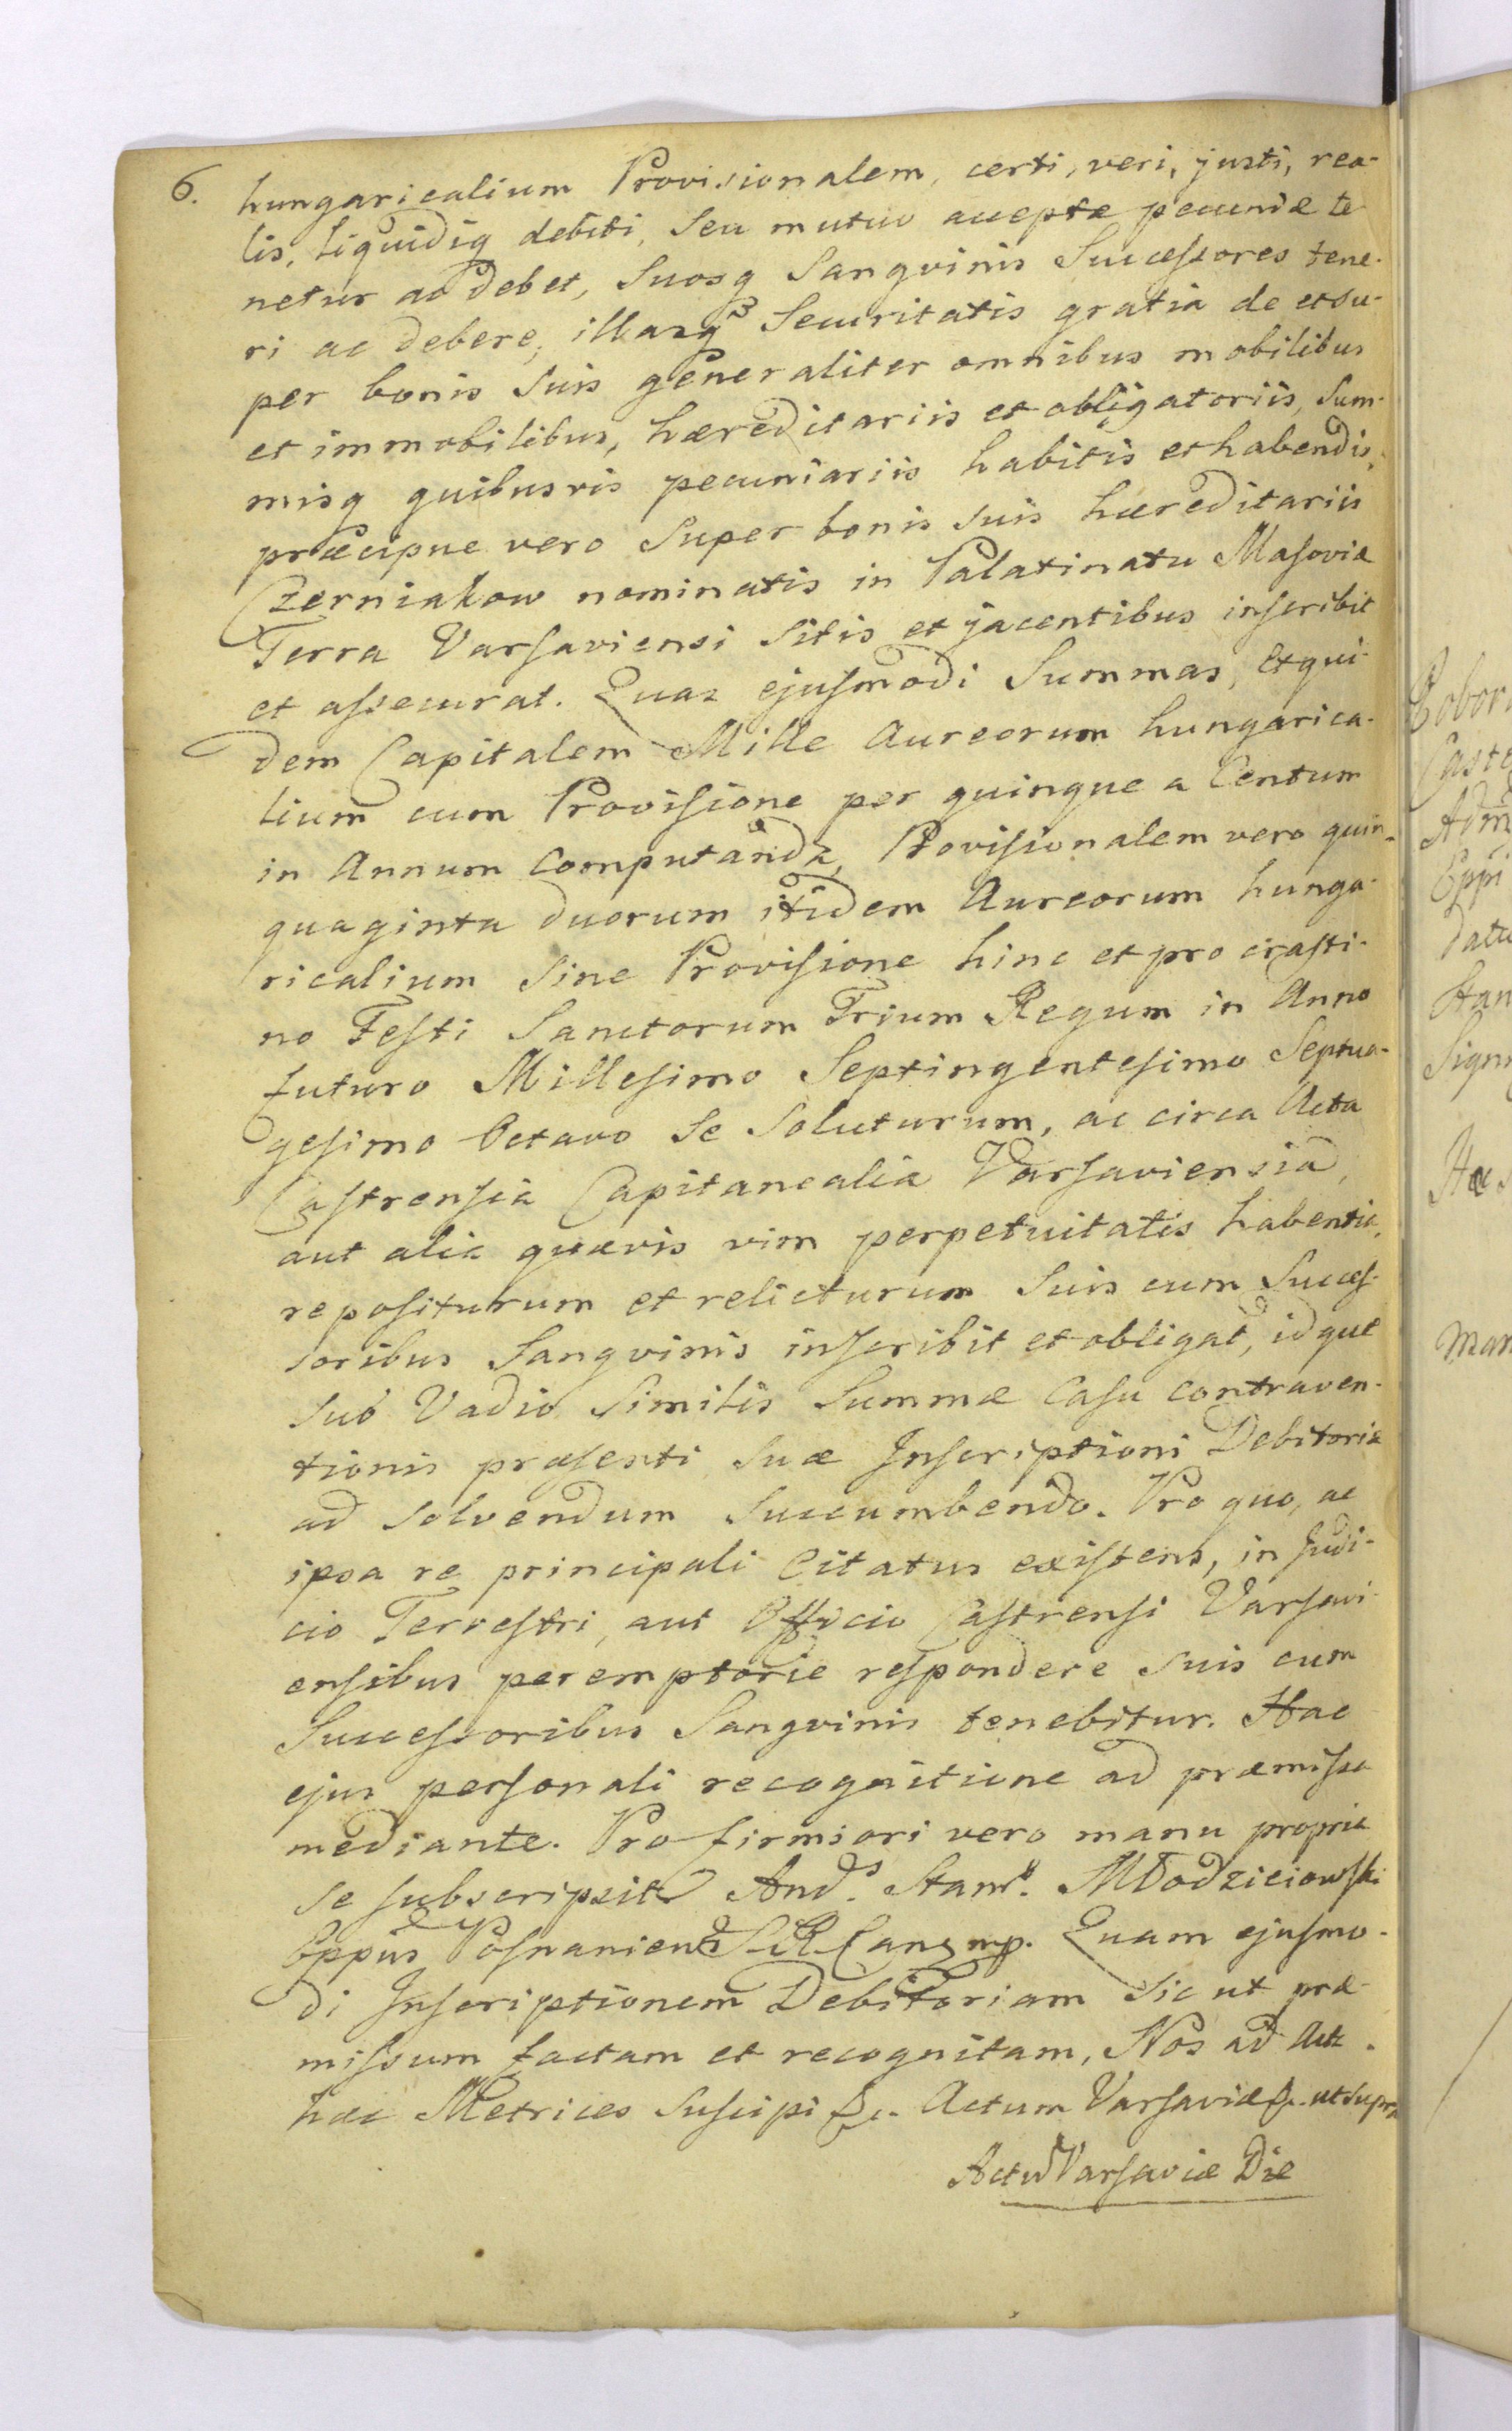 6.
hungaricalium Provisionalem, certi, veri, justi, rea-
lis, liquidiq debiti, seu mutuo acceptæ pecuniæ te
netur ac debet, Suosq Sangvinis Successores tene-
ri ac debere, illasq Securitatis gratia de et su-
per bonis suis generaliter omnibus mobilibus
et immobilibus, hæreditariis et obligatoriis, Sum-
misq quibusvis pecuniariis habitis et habendis,
præcipue vero Super bonis suis hæreditariis
Czerniakow nominatis in Palatinatu Masoviæ
Terra Varsaviensi Sitis et jacentibus inscribit
et assecurat. Quas ejusmodi Summas, et qui-
dem Capitalem Mille Aureorum hungarica-
lium cum Provisione per quinque a Centum
in Annum computanda, Provisionalem vero quin-
quaginta duorum itidem Aureorum hunga-
ricalium Sine Provisione hinc et pro crasti-
no Festi Sanctorum Trium Regum in Anno
futuro Millesimo Septingentesimo Septua-
gesimo Octavo Se Soluturum, ac circa Acta
Castrensia Capitanealia Varsaviensia,
aut alia quævis vim perpetuitatis habentia,
repositurum et relicturum Suis cum Succes-
soribus Sangvinis inscribit et obligat, idque
sub Vadio Similis Summæ Casu contraven-
tionis præsenti suæ Inscriptioni Debitoriæ
ad solvendum Succumbendo. Pro quo, ac
ipsa re principali Citatus existens, in Judi-
cio Terrestri, aut Officio Castrensi Varsavi-
ensibus peremptorie respondere Suis cum
Successoribus Sangvinis tenebitur. Hac
ejus personali recognitione ad præmissa
mediante. Pro firmiori vero manu propria
se subscripsit And.s Stan.s Młodzieiowski
Eppus Posnanien S. R. Canz mp. Quam ejusmo-
di Inscriptionem Debitoriam Sic ut præ-
missum factam et recognitam, Nos ad Act
hæc Metrices Suscipi &c. Actum Varsaviæ &. ut supra
Actu Varsaviæ Die
Castr
Adm
Eppi
Datu
Stan
Sign
Man